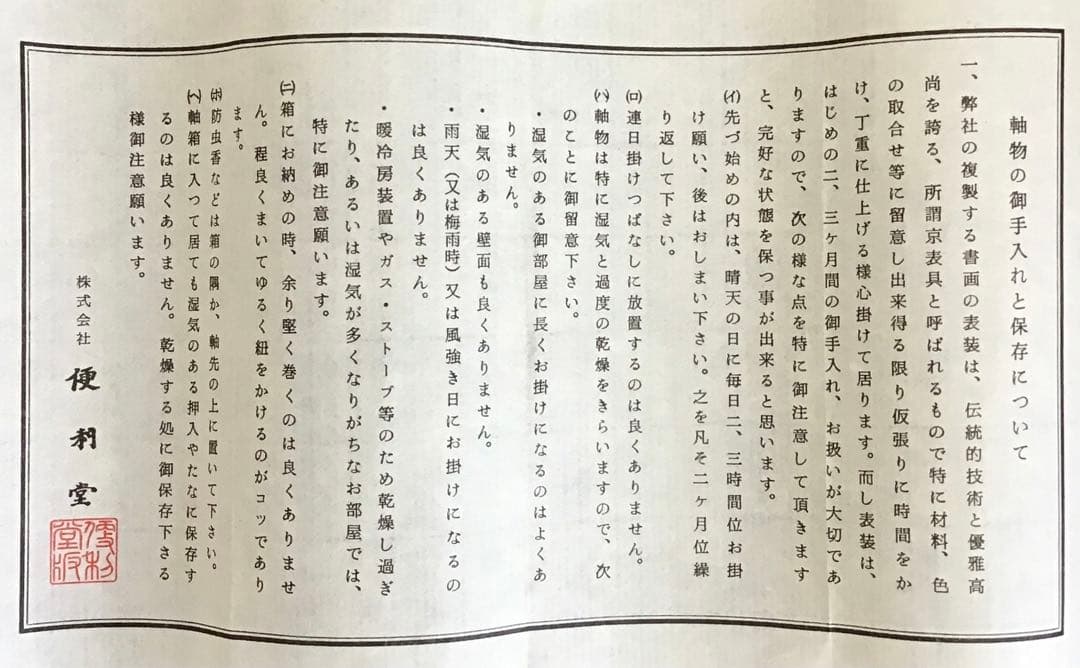 軸物の御手入れと保存について
一、弊社の複製する書画の表装は、伝統的技術と優雅高
尚を誇る、所謂京表具と呼ばれるもので特に材料、色
の取合せ等に留意し出来得る限り仮張りに時間をか
け、丁重に仕上げる様心掛けて居ります。而し表装は、
はじめの二、三ヶ月間の御手入れ、お扱いが大切であ
りますので、次の様な点を特に御注意して頂きます
と、完好な状態を保つ事が出来ると思います。
(イ)先づ始めの内は、晴天の日に毎日二、三時間位お掛
け願い、後はおしまい下さい。之を凡そ二ヶ月位繰
り返して下さい。
(ロ)連日掛けつばなしに放置するのは良くありません。
(ハ)軸物は特に湿気と過度の乾燥をきらいますので、次
のことに御留意下さい。
・湿気のある御部屋に長くお掛けになるのはよくあ
りません。
・湿気のある壁面も良くありません。
・雨天(又は梅雨時)又は風強き日にお掛けになるの
は良くありません。
・暖冷房装置やガス・ストーブ等のため乾燥し過ぎ
たり、あるいは湿気が多くなりがちなお部屋では、
特に御注意願います。
(ニ)箱にお納めの時、余り堅く巻くのは良くありませ
ん。程良くまいてゆるく紐をかけるのがコツであり
ます。
(ホ)防虫香などは箱の隅か、軸先の上に置いて下さい。
(ヘ)軸箱に入つて居ても湿気のある押入やたなに保存す
るのは良くありません。乾燥する処に御保存下さる
様御注意願います。
株式会社 便利堂
便利堂版